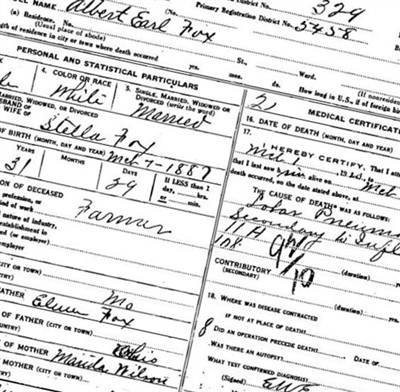 FULL NAME Albert Earl Fox
Primary Registration District No. 5458
329
(a) Residence, No.
(Usual place of abode)
St.
Ward.
(If nonresident
Length of residence in city or town where death occurred
yrs.
mos.
ds.
How long in U.S., if of foreign bi
PERSONAL AND STATISTICAL PARTICULARS
4. COLOR OR RACE
White
5. SINGLE, MARRIED, WIDOWED OR
DIVORCED (write the word)
Married
MARRIED, WIDOWED, OR DIVORCED
HUSBAND OF
WIFE OF
Stella Fox
OF BIRTH (MONTH, DAY AND YEAR) Mch 7-1887
YEARS
31
MONTHS
DAYS
29
If LESS than 1
day, hrs.
min.
OF DECEASED
Farmer
kind of work
nature of industry,
establishment in
(or employer)
employer
(CITY OR TOWN)
Mo
FATHER
Elmer Fox
OF FATHER (CITY OR TOWN)
Ohio
OF MOTHER Manda Wilson
MOTHER (CITY OR TOWN)
2
MEDICAL CERTIFICAT
16. DATE OF DEATH (MONTH, DAY AND YEAR)
17.
I HEREBY CERTIFY, That I att
that I last saw alive on
death occurred, on the date stated above, at
THE CAUSE OF DEATH* WAS AS FOLLOWS:
Lobar Pneumo
Secondary to Infl
11A
108
9/10
(duration)
yrs.
CONTRIBUTORY
(SECONDARY)
(duration)
18. WHERE WAS DISEASE CONTRACTED
IF NOT AT PLACE OF DEATH?
8
DID AN OPERATION PRECEDE DEATH?
WAS THERE AN AUTOPSY?
WHAT TEST CONFIRMED DIAGNOSIS?
(Signed)